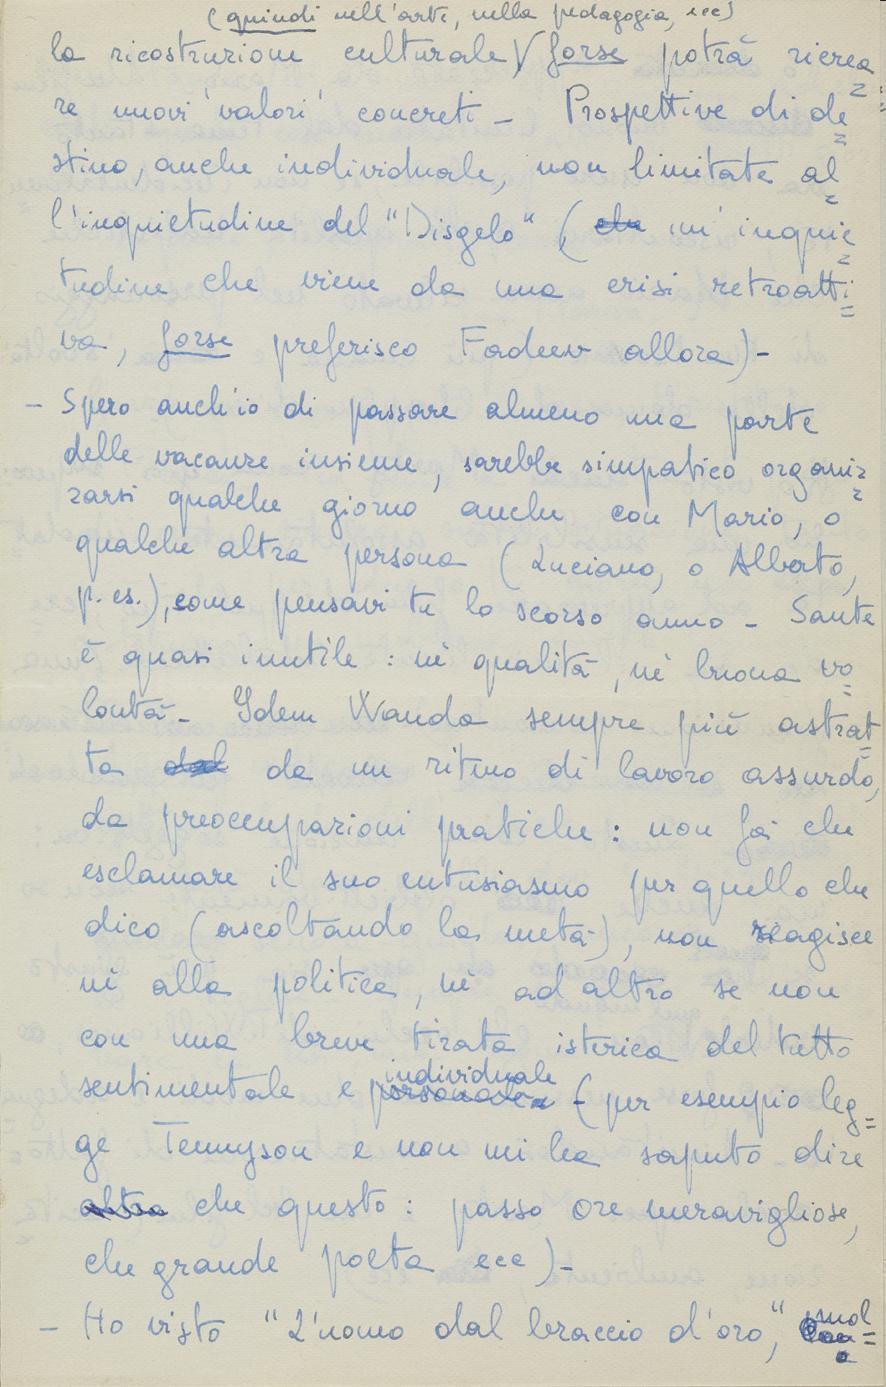 (quindi nell'arte, nella pedagogia, ecc)
la ricostruzione culturale) forse potrà ricrea=
re nuovi 'valori' concreti - Prospettive di de=
stino, anche individuale, non limitate al=
l'inquietudine del "Disgelo" (che un' inquie=
tudine che viene da una crisi retroatti=
va, forse preferisco Fadeev allora) -
- Spero anch'io di passare almeno una parte
delle vacanze insieme, sarebbe simpatico organiz=
zarsi qualche giorno anche con Mario, o
qualche altra persona (Luciano, o Alberto,
p. es.), come pensavi tu lo scorso anno - Sante
è quasi inutile : nè qualità, nè buona vo=
lontà - Idem Wanda sempre più astrat=
ta dal da un ritmo di lavoro assurdo,
da preoccupazioni pratiche : non fa che
esclamare il suo entusiasmo per quello che
dico (ascoltando la metà), non reagisce
nè alla politica, nè ad altro se non
con una breve tirata isterica del tutto
individuale
sentimentale e personale - (per esempio leg=
ge Tennyson e non mi ha saputo dire
altro che questo : passo ore meravigliose,
che grande poeta ecc) -
- Ho visto "L'uomo dal braccio d'oro,"